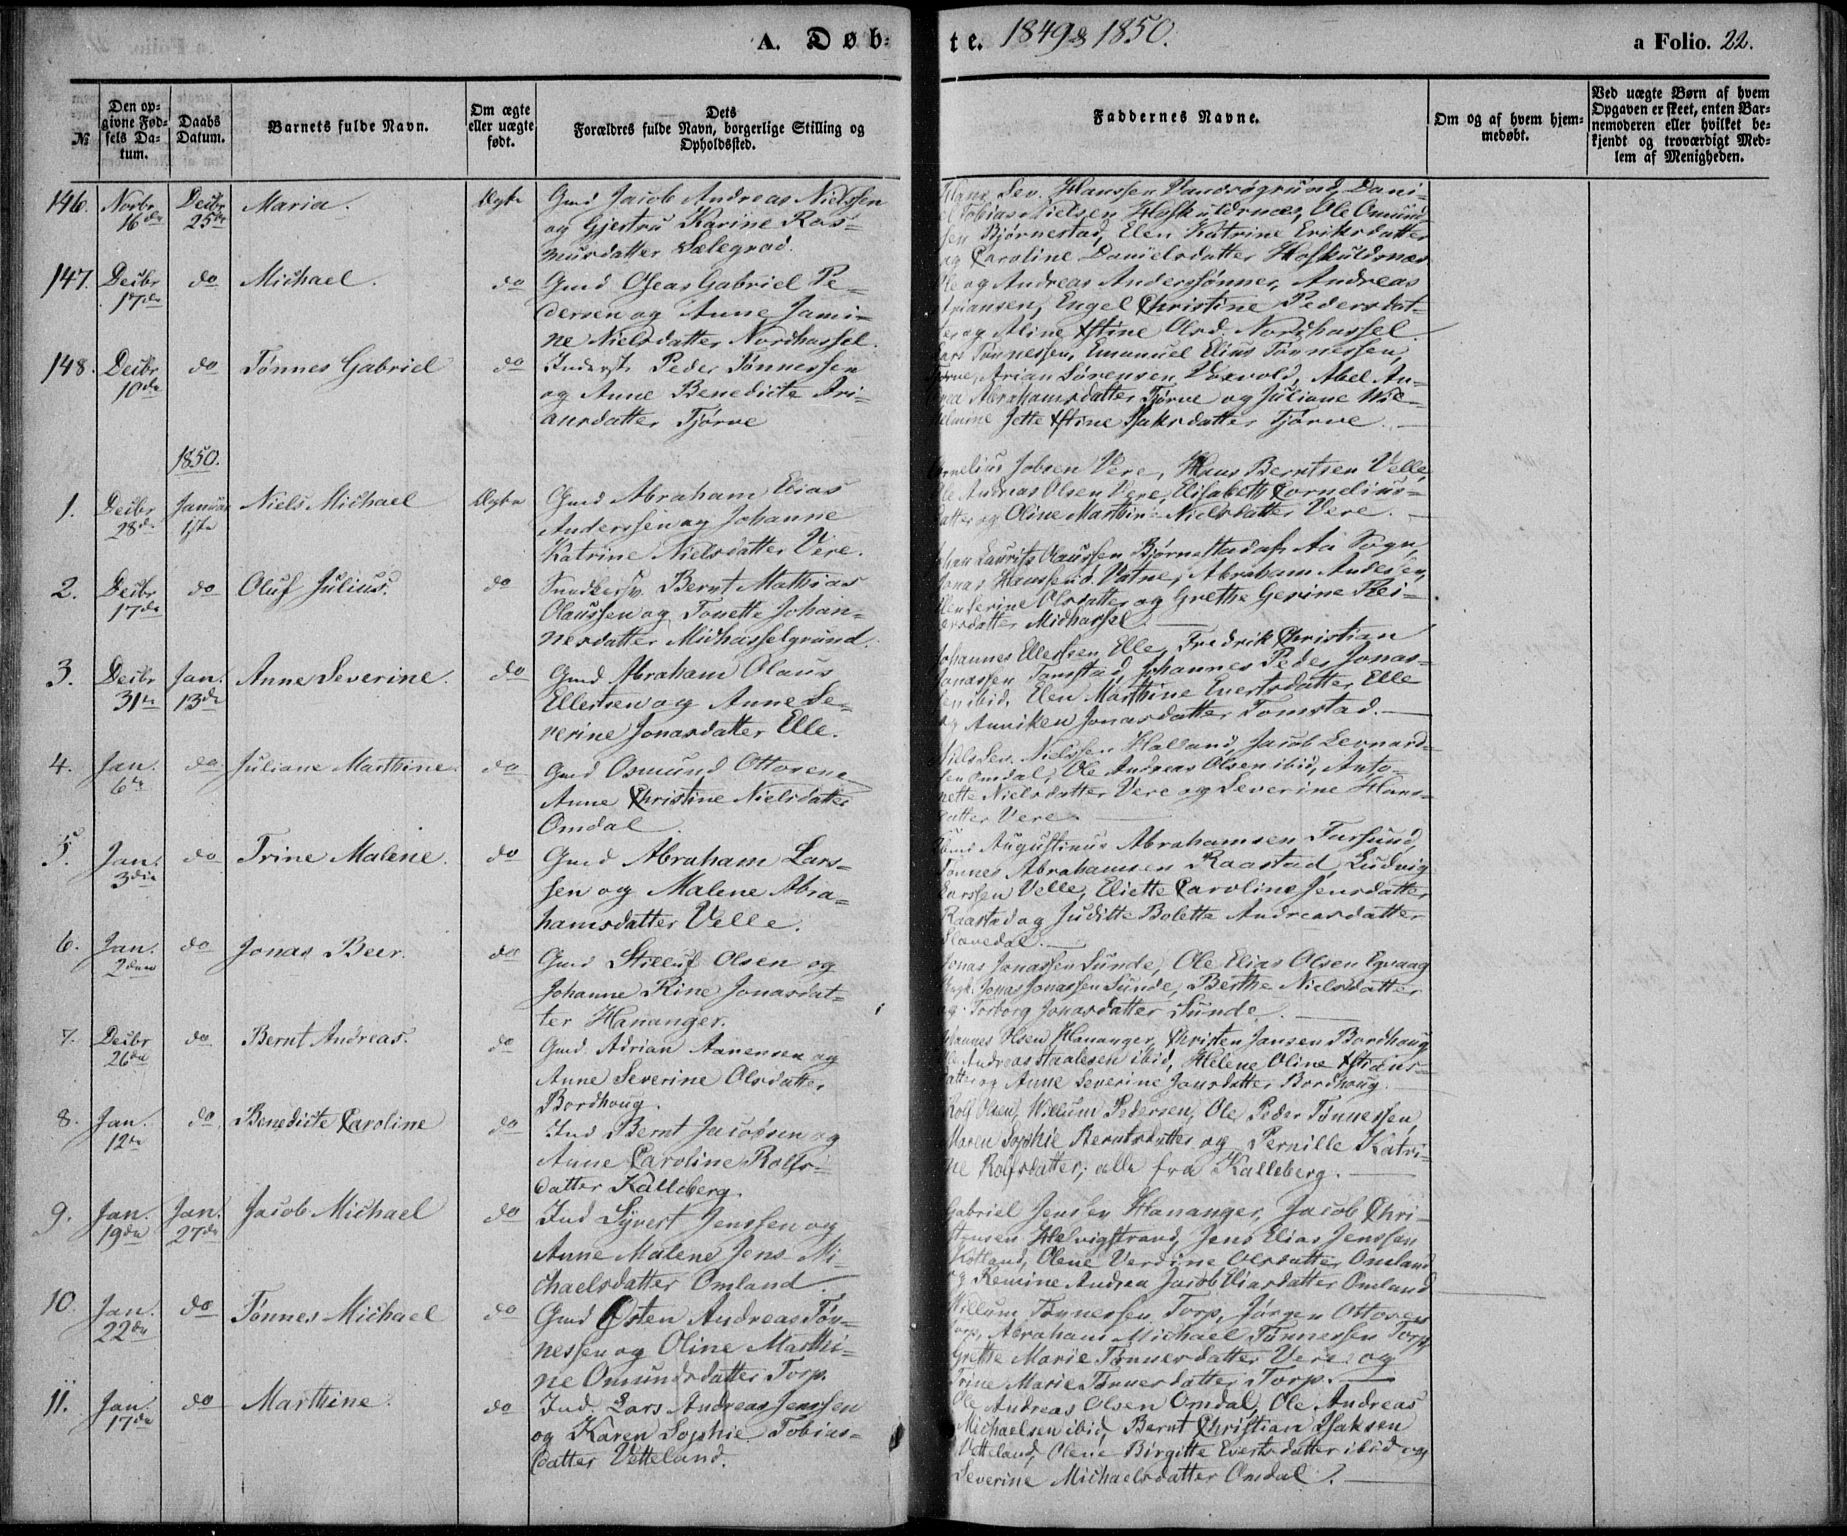 A. Døb-
te. 1849 & 1850.
a Folio. 22.
№
Den op-
givne Fød-
sels Da-
tum.
Daabs
Datum.
Barnets fulde Navn.
Om ægte
eller uægte
født.
Dets
Forældres fulde Navn, borgerlige Stilling og
Opholdssted.
Faddernes Navne.
Om og af hvem hjem-
medøbt.
Ved uægte Børn af hvem
Opgaven er skeet, enten Bar-
nemoderen eller hvilket be-
kjendt og troværdigt Med-
lem af Menigheden.
146. Novbr 16de Decbr 25de Maria. Ægte
Gmd Jacob Andreas Nielssen
og Gjertru Karine Ras-
musdatter Sælegrad.
Sev. Hanssen Vandsøgrund, Dani-
Tobias Nielsen Hoskuldsnæs, Ole Omund-
sen Bjørnestad, Elen Katrine Eriksdatter
og Caroline Danielsdatter Hoskuldsnæs
147. Decbr 17de do Michael. do
Gmd Oseas Gabriel Pe-
dersen og Anne Jami-
ne Nielsdatter Nordhassel.
og Andreas Anderssønner, Andreas
Engel Christine Pedersdat-
ter og Aline Xstine Olsd. Nordhassel.
148. Decbr 10de do Tønnes Gabriel do
Inderst Peder Tønnessen
og Anne Benedicte Ari-
ansdatter Tjørve
Lars Tønnessen, Emanuel Elius Tønnessen
Tjørve, Arian Sørensen Voxvold, Abel An-
Abrahamsdatter Tjørve og Juliane Wil-
helmine Jette Xstine Isaksdatter Tjørve.
1850.
1. Decbr 28de Januar 1ste Niels Michael Ægte
Gmd Abraham Elias
Anderssen og Johanne
Katrine Nielsdatter Vere.
Cornelius Jobsen Vere, Hans Berntsen Velle,
Ole Andreas Olsen Vere, Elisabeth Cornelius-
datter og Oline Marthine Nielsdatter Vere.
2. Decbr 17de do Oluf Julius. do
Snedkersv. Bernt Mathias
Olaussen og Tonette Johan-
nesdatter Midhasselgrund.
Laurits Olaussen Bjørnestad af Aa Sogn,
Jonas Hanssen Vatne, Abraham Andersen,
Olsdatter og Grethe Gerine Rei-
ersdatter Midhassel
3. Decbr 31te Jan. 13de Anne Severine. do
Gmd Abraham Olaus
Ellertsen og Anne Se-
verine Jonasdatter Elle.
Johannes Ellertsen Elle, Fredrik Christian
Jonassen Tomstad, Johannes Peder Jonas-
sen ibid, Elen Marthine Evertsdatter Elle
og Anniken Jonasdatter Tomstad.
4. Jan. 6te do Juliane Marthine. do
Gmd Osmund Ottosen
Anne Christine Nielsdatter
Omdal.
Niels Sev. Nielssen Halland, Jacob Leonard-
sen Omdal, Ole Andreas Olsen ibid, Anto-
nette Nielsdatter Vere og Severine Hans-
datter Vere
5. Jan. 3die do Trine Malene. do
Gmd Abraham Lars-
sen og Malene Abra-
hamsdatter Velle.
Augustinus Abrahamsen Farsund,
Tønnes Abrahamsen Raastad, Ludvig
Larssen Velle, Eliette Caroline Jensdatter
Raastad og Juditte Bolette Andreasdatter
6. Jan. 2den do Jonas Beer. do
Gmd Stilluf Olsen og
Johanne Rine Jonasdat-
ter Hananger.
Jonas Jonassen Sunde, Ole Elias Olsen Egvaag
Jonas Jonassen Sunde, Berthe Nielsdatter
og Torborg Jonasdatter Sunde.
7. Decbr 26de do Bernt Andreas. do
Gmd Adrian Aanensen og
Anne Severine Olsdatter
Bordhoug.
Johannes Olsen Hananger, Christen Jansen Bordhoug
Ole Andreas Staalesen ibid, Helene Oline Xstians-
datter og Anne Severine Jansdatter Bordhoug.
8. Jan. 12te do Benedicte Caroline do
Ind Bernt Jacobsen og
Anne Caroline Rolfs-
datter Kalleberg.
Rolf Olsen, Willum Pedersen, Ole Peder Tønnessen,
Maren Sophie Berntsdatter og Pernille Katri-
ne Rolfsdatter; alle fra Kalleberg.
9. Jan. 19de Jan. 27de Jacob Michael do
Ind Syvert Jenssen og
Anne Malene Jens Mi-
chaelsdatter Omland.
Gabriel Jensen Hananger, Jacob Chri-
stensen Helvigstrand, Jens Elias Jenssen
Kolland, Olene Verdine Olsdatter Omland
og Remine Andrea Jacob Eliasdatter Omland
10. Jan. 22de do Tønnes Michael do
Gmd Østen Andreas Tøn-
nessen og Oline Marthi-
ne Omundsdatter Torp.
Willum Tønnessen Torp, Jørgen Ottosen
Torp, Abraham Michael Tønnessen Torp
Grethe Marie Tønnesdatter Vere og
Trine Marie Tønnesdatter Torp.
11. Jan. 17de do Marthine. do
Ind. Lars Andreas Jenssen
og Karen Sophie Tobias-
datter Vetteland.
Ole Andreas Olsen Omdal, Ole Andreas
Michaelsen ibid, Bernt Christian Isaksen
Vetteland, Olene Birgitte Evertsdatter ibid og
Severine Michaelsdatter Omdal.